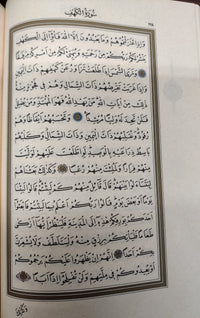 سُورَةُ الكَهْفِ
وَإِذِ اعْتَزَلْتُمُوهُمْ وَمَا يَعْبُدُونَ إِلَّا اللَّهَ فَأْوُوا إِلَى الْكَهْفِ
يَنشُرْ لَكُمْ رَبُّكُم مِّن رَّحْمَتِهِ وَيُهَيِّئْ لَكُم مِّنْ أَمْرِكُم مِّرْفَقًا
وَتَرَى الشَّمْسَ إِذَا طَلَعَت تَّزَاوَرُ عَن كَهْفِهِمْ ذَاتَ الْيَمِينِ
وَإِذَا غَرَبَت تَّقْرِضُهُمْ ذَاتَ الشِّمَالِ وَهُمْ فِي فَجْوَةٍ مِّنْهُ
ذَٰلِكَ مِنْ آيَاتِ اللَّهِ مَن يَهْدِ اللَّهُ فَهُوَ الْمُهْتَدِ وَمَن يُضْلِلْ
فَلَن تَجِدَ لَهُ وَلِيًّا مُّرْشِدًا وَتَحْسَبُهُمْ أَيْقَاظًا وَهُمْ
رُقُودٌ وَنُقَلِّبُهُمْ ذَاتَ الْيَمِينِ وَذَاتَ الشِّمَالِ وَكَلْبُهُم
بَاسِطٌ ذِرَاعَيْهِ بِالْوَصِيدِ لَوِ اطَّلَعْتَ عَلَيْهِمْ لَوَلَّيْتَ
مِنْهُمْ فِرَارًا وَلَمُلِئْتَ مِنْهُمْ رُعْبًا وَكَذَٰلِكَ بَعَثْنَاهُمْ
لِيَتَسَاءَلُوا بَيْنَهُمْ قَالَ قَائِلٌ مِّنْهُمْ كَمْ لَبِثْتُمْ قَالُوا لَبِثْنَا
يَوْمًا أَوْ بَعْضَ يَوْمٍ قَالُوا رَبُّكُمْ أَعْلَمُ بِمَا لَبِثْتُمْ فَابْعَثُوا
أَحَدَكُم بِوَرِقِكُمْ هَٰذِهِ إِلَى الْمَدِينَةِ فَلْيَنظُرْ أَيُّهَا أَزْكَىٰ
طَعَامًا فَلْيَأْتِكُم بِرِزْقٍ مِّنْهُ وَلْيَتَلَطَّفْ وَلَا يُشْعِرَنَّ
بِكُمْ أَحَدًا إِنَّهُمْ إِن يَظْهَرُوا عَلَيْكُمْ يَرْجُمُوكُمْ
أَوْ يُعِيدُوكُمْ فِي مِلَّتِهِمْ وَلَن تُفْلِحُوا إِذًا أَبَدًا
وَكَذَٰلِكَ